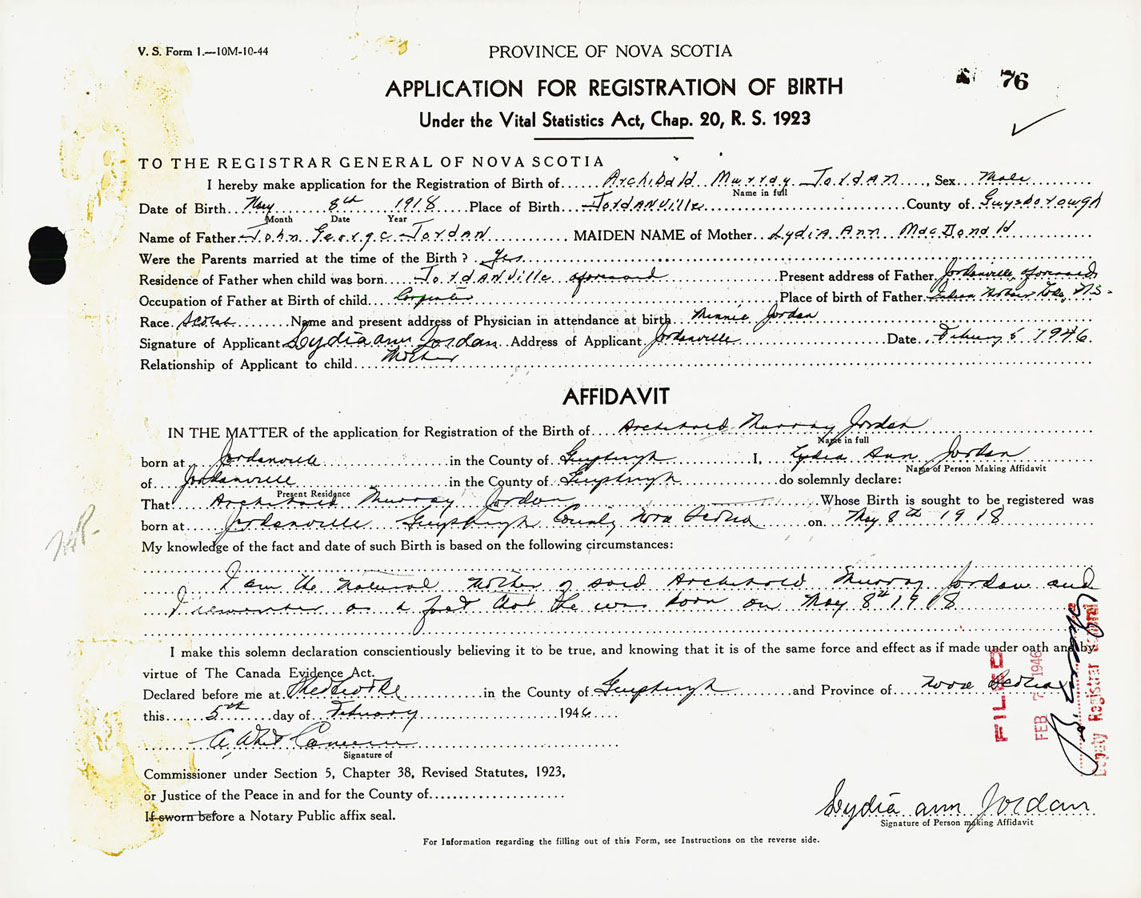 V. S. Form 1.—10M-10-44
PROVINCE OF NOVA SCOTIA
76
APPLICATION FOR REGISTRATION OF BIRTH
Under the Vital Statistics Act, Chap. 20, R. S. 1923
TO THE REGISTRAR GENERAL OF NOVA SCOTIA
I hereby make application for the Registration of Birth of Archibald Murray Jordan, Sex Male
Name in full
Date of Birth May 8th 1918 Place of Birth Jordanville County of Guysborough
Month Date Year
Name of Father John George Jordan MAIDEN NAME of Mother Lydia Ann MacDonald
Were the Parents married at the time of the Birth? Yes
Residence of Father when child was born Jordanville aforesaid Present address of Father Jordanville, aforesaid
Occupation of Father at Birth of child Carpenter Place of birth of Father N.S.
Race Scotch Name and present address of Physician in attendance at birth Minnie Jordan
Signature of Applicant Lydia ann Jordan Address of Applicant Jordanville Date February 5 1946
Relationship of Applicant to child Mother
AFFIDAVIT
IN THE MATTER of the application for Registration of the Birth of Archibald Murray Jordan
Name in full
born at Jordanville in the County of Guysborough I, Lydia Ann Jordan
Name of Person Making Affidavit
of Jordanville in the County of Guysborough do solemnly declare:
Present Residence
That Archibald Murray Jordan Whose Birth is sought to be registered was
born at Jordanville Guysborough County Nova Scotia on May 8th 1918
My knowledge of the fact and date of such Birth is based on the following circumstances:
I am the natural mother of said Archibald Murray Jordan and
I remember as a fact that he was born on May 8th 1918
I make this solemn declaration conscientiously believing it to be true, and knowing that it is of the same force and effect as if made under oath and by
virtue of The Canada Evidence Act.
Declared before me at Sherbrooke in the County of Guysborough and Province of Nova Scotia
this 5th day of February 1946
Signature of
Commissioner under Section 5, Chapter 38, Revised Statutes, 1923,
or Justice of the Peace in and for the County of
If sworn before a Notary Public affix seal.
Lydia ann Jordan
Signature of Person making Affidavit
For Information regarding the filling out of this Form, see Instructions on the reverse side.
FILED
FEB 7 1946
Deputy Registrar General